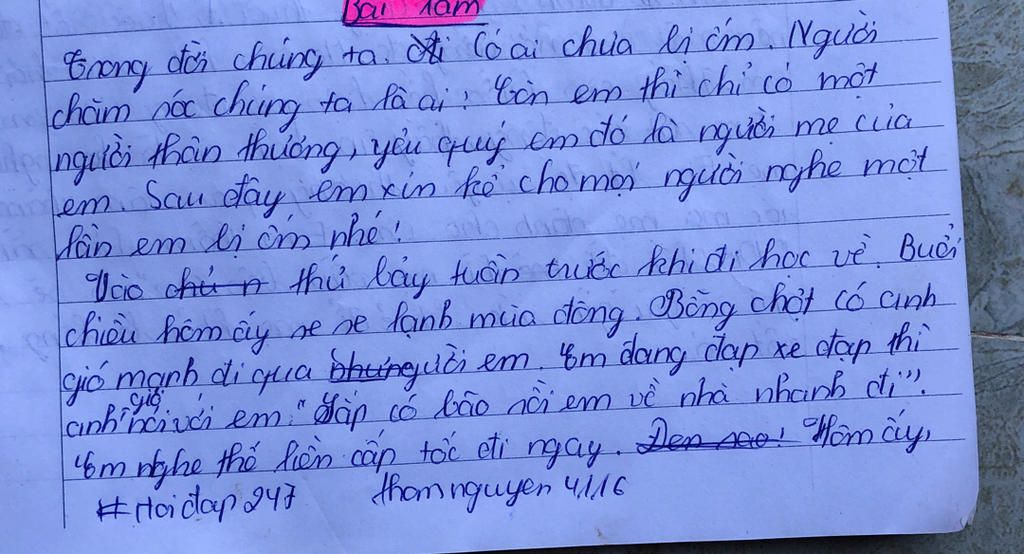 Bài làm
Trong đời chúng ta. ai Có ai chưa bị ốm. Người
chăm sóc chúng ta là ai? Còn em thì chỉ có một
người thân thương, yêu quý em đó là người mẹ của
em. Sau đây em xin kể cho mọi người nghe một
lần em bị ốm nhé!
Vào chứ n thứ bảy tuần trước khi đi học về. Buổi
chiều hôm ấy se se lạnh mùa đông. Bỗng chợt có anh
gió mạnh đi qua người em. Em đang đạp xe đạp thì
anh gió nói với em "Sắp có bão rồi em về nhà nhanh đi".
Em nghe thế liền cấp tốc đi ngay. Đen sao! Hôm ấy,
#Hoidap247 thomnguyen41116